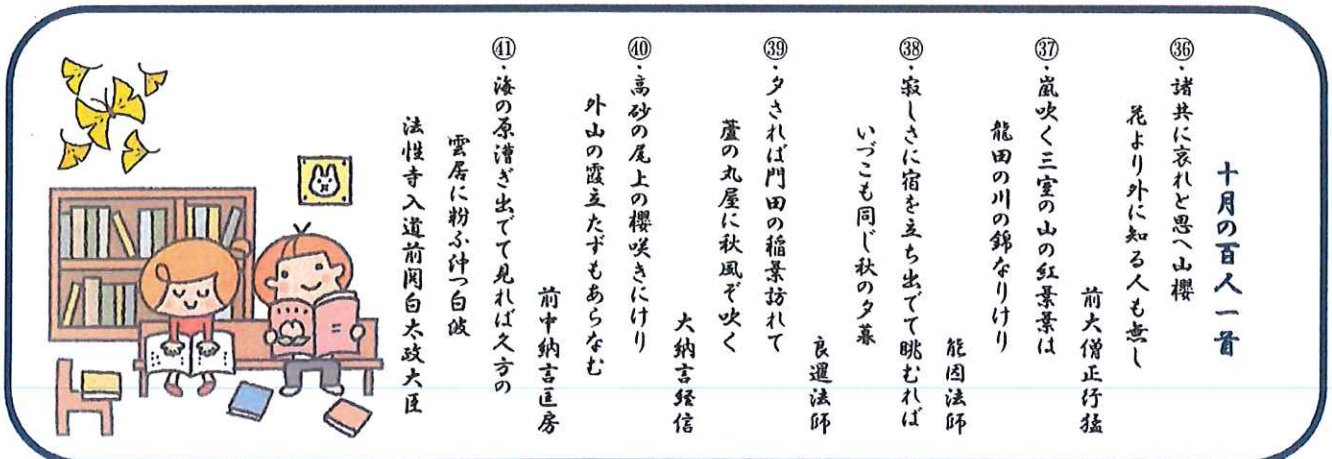 十月の百人一首
㊱・諸共に哀れと思へ山櫻
花より外に知る人も無し
前大僧正行猛
㊲・嵐吹く三室の山の紅葉葉は
龍田の川の錦なりけり
能因法師
㊳・寂しさに宿を立ち出でて眺むれば
いづこも同じ秋の夕暮
良暹法師
㊴・夕されば門田の稲葉訪れて
蘆の丸屋に秋風ぞ吹く
大納言経信
㊵・高砂の尾上の櫻咲きにけり
外山の霞立たずもあらなむ
前中納言匡房
㊶・海の原漕ぎ出でて見れば久方の
雲居に粉ふ沖つ白波
法性寺入道前関白太政大臣